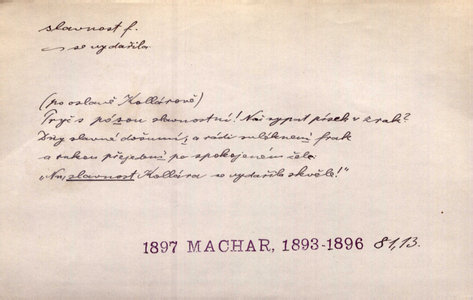 slavnost f.
~ se vydařila
(po oslavě Kollárově)
Pryč s pózou slavnostní! Nač sypat písek v zrak?
Dny slavné došumí, a rádi svléknem frak
a rukou přejedem po spokojeném čele:
„Nu, slavnost Kollára se vydařila skvěle!"
1897 MACHAR, 1893-1896 81,13.